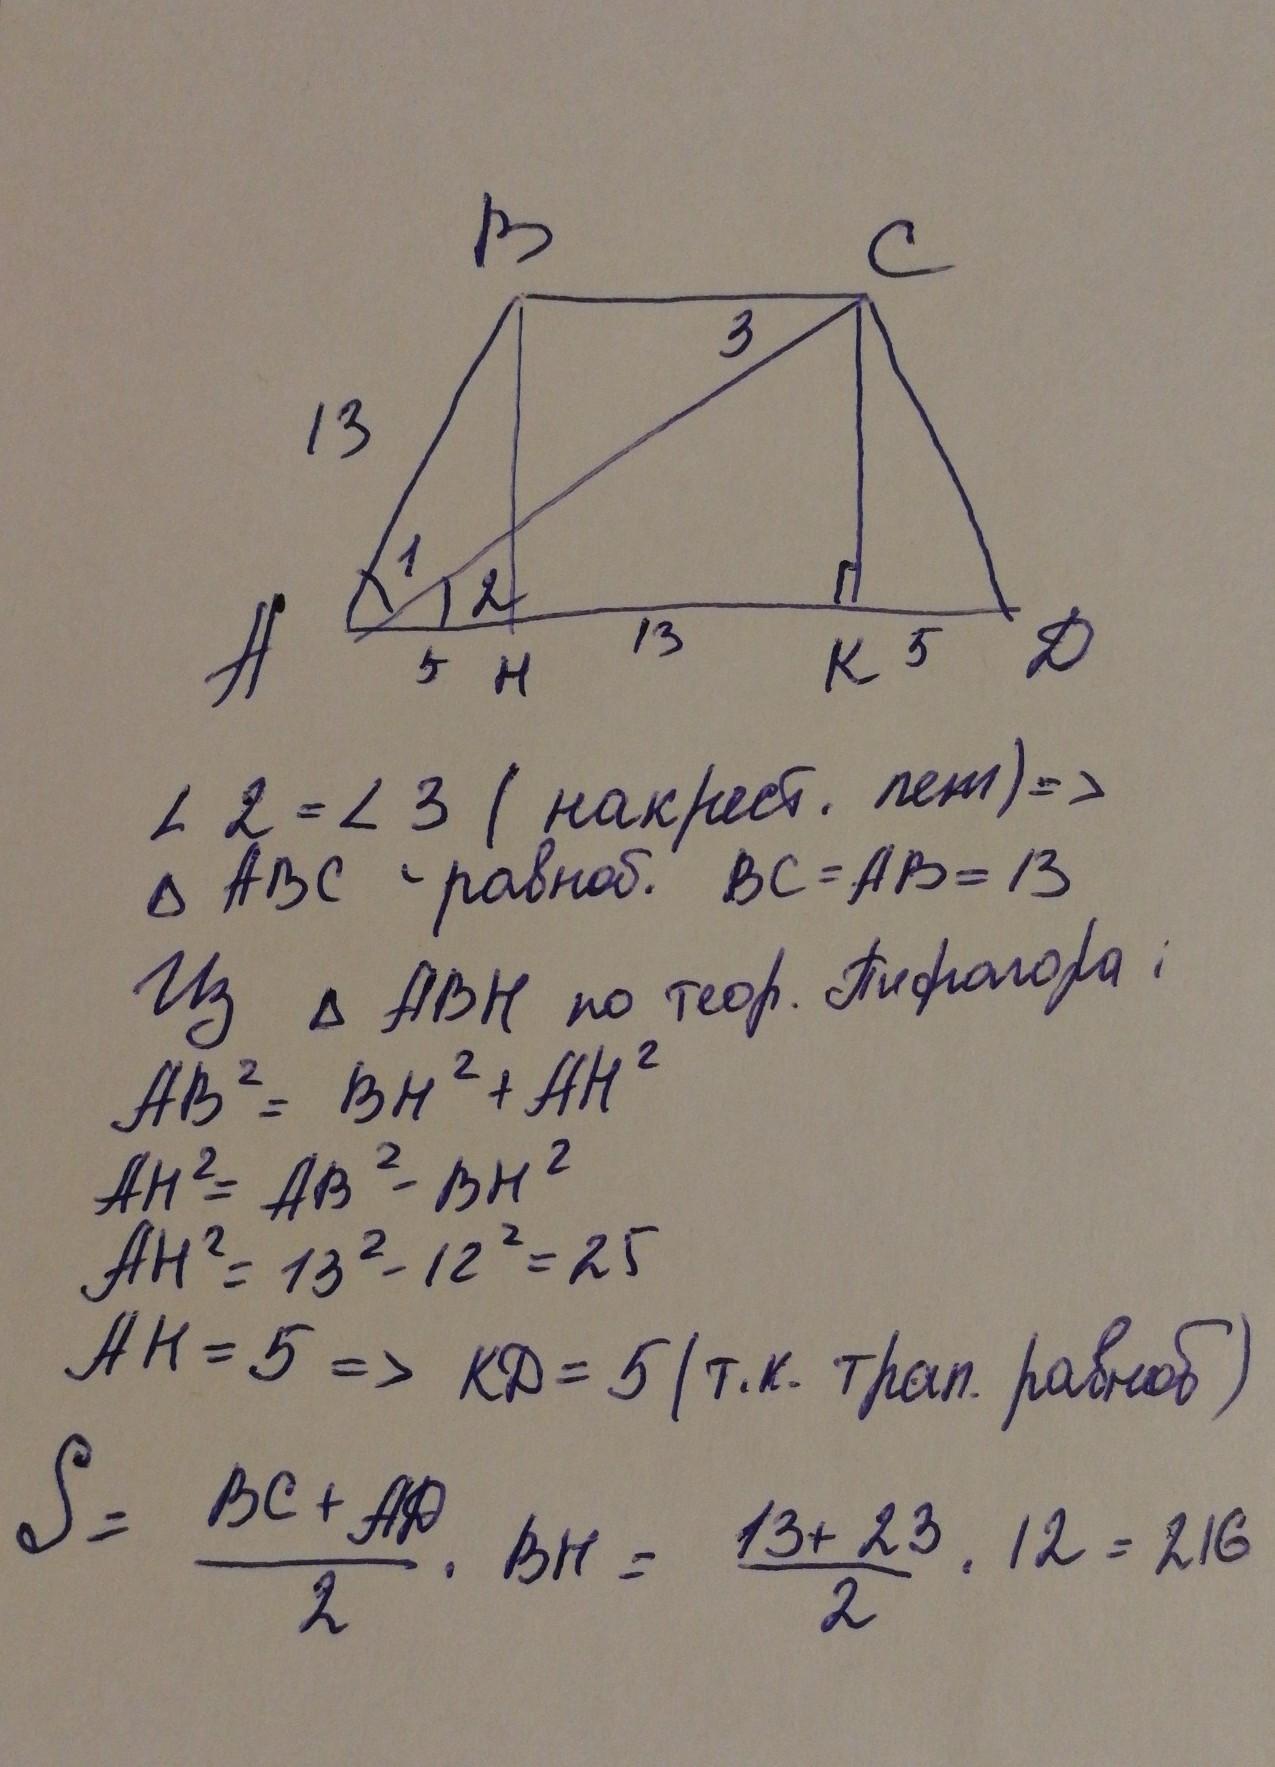 B C
3
13
1
2
A 5 H 13 K 5 D
∠ 2 = ∠ 3 ( накрест. леж) =>
Δ ABC - равноб. BC = AB = 13
Из Δ ABH по теор. Пифагора :
AB² = BH² + AH²
AH² = AB² - BH²
AH² = 13² - 12² = 25
AH = 5 => KD = 5 ( т.к. трап. равноб )
S = (BC + AD)/2 · BH = (13 + 23)/2 · 12 = 216